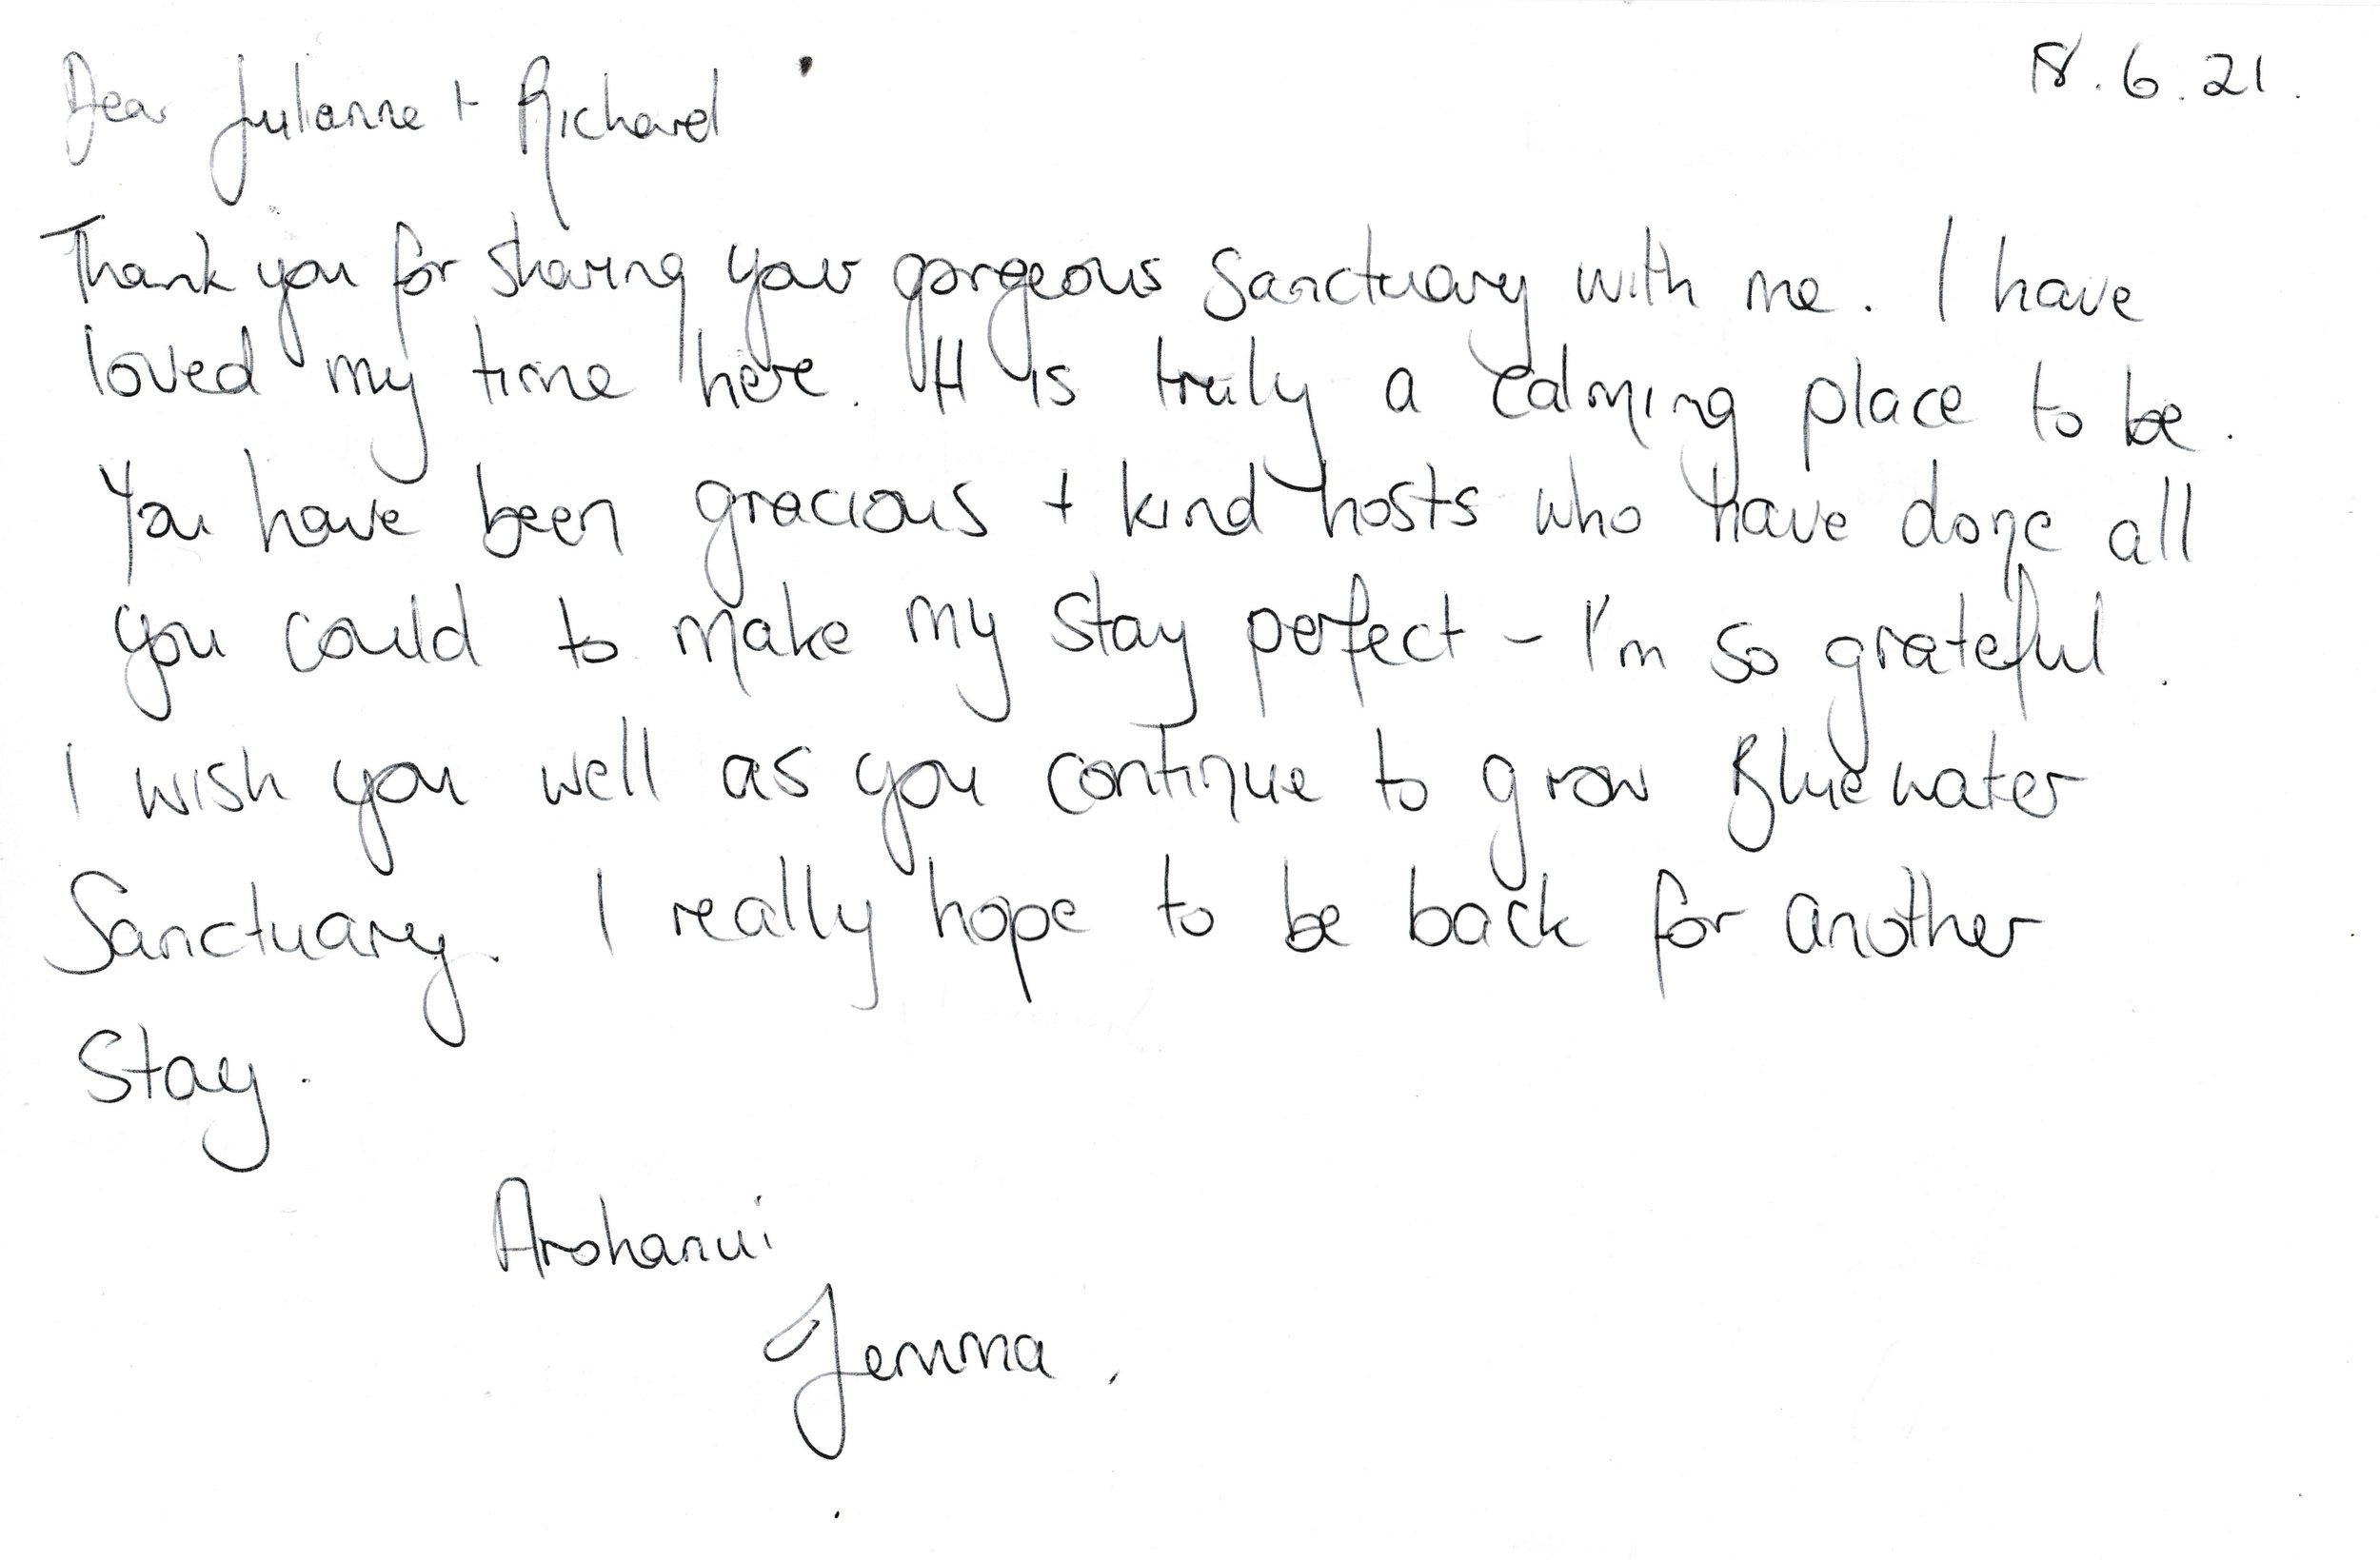 18.6.21.
Dear Julianne + Richard
Thank you for sharing your gorgeous Sanctuary with me. I have
loved my time here. It is truly a calming place to be.
You have been gracious + kind hosts who have done all
you could to make my stay perfect - I'm so grateful.
I wish you well as you continue to grow Bluewater
Sanctuary. I really hope to be back for another
Stay.
Arohanui
Jemma.